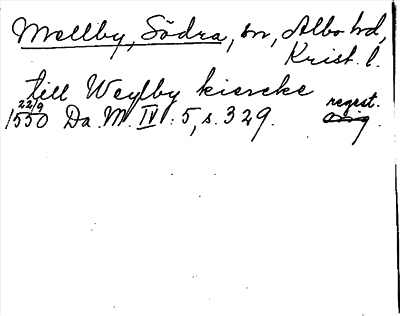 Mellby, Södra, sn, Albo hd,
Krist. l.
till Weylby kiercke
22/9
1550 Da. M. IV : 5, s. 329. regest.
orig.